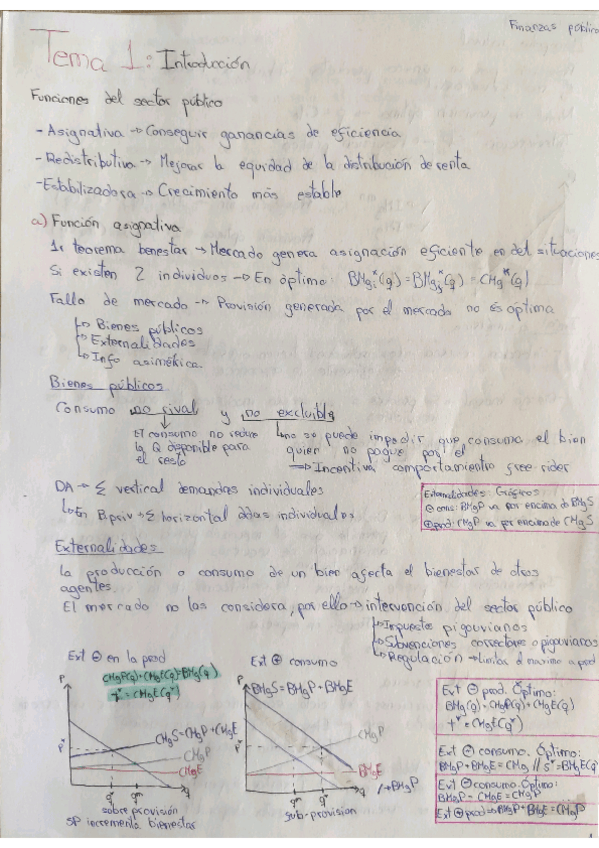 Finanzas público
Tema 1: Introducción
Funciones del sector público
- Asignativa → Conseguir ganancias de eficiencia
- Redistributiva → Mejorar la equidad de la distribución de renta
- Estabilizadora → Crecimiento más estable
a) Función asignativa
1r teorema benestar → Mercado genera asignación eficiente en det situaciones
Si existen 2 individuos → En óptimo: BMgi*(q) = BMgj*(q) = CMg*(q)
Fallo de mercado → Provisión generada por el mercado no és óptima
↳ Bienes públicos
↳ Externalidades
↳ Info asimétrica.
Bienes públicos
Consumo no rival y no excluible
El consumo no reduce la Q disponible para el resto
↳ no se puede impedir que consuma el bien quien no pague por el
⟹ Incentiva comportamiento free rider
DA → Σ vertical demandas individuales
↳ En B.priv → Σ horizontal ddas individuales
Externalidades: Gráficos
⊖ cons: BMgP va por encima de BMgS
⊕ prod: CMgP va por encima de CMgS
Externalidades
La producción o consumo de un bien afecta el bienestar de otros
agentes.
El mercado no las considera, por ello → intervención del sector público
↳ Impuestos pigouvianos
↳ Subvenciones correctoras o pigouvianas
↳ Regulación → Limitar o máximo a prod
Ext ⊖ en la prod
CMgP(q) + CMgE(q) = BMg(q)
t* = CMgE(q*)
P
CMgS = CMgP + CMgE
CMgP
CMgE
P*
q* qm q
sobre provisión
SP incrementa bienestar
Ext ⊕ consumo
P
BMgS = BMgP + BMgE
CMgP
BMgE
BMgP
P*
qm q*
sub-provision
Ext ⊖ prod. Óptimo:
BMg(q) = CMgP(q) + CMgE(q)
t* = CMgE(q*)
Ext ⊕ consumo. Óptimo:
BMgP + BMgE = CMg // s* = BMgE(q
Ext ⊖ consumo. Óptimo:
BMgP - CMgE = CMgP
Ext ⊕ prod → BMgP + BMgE = CMgP